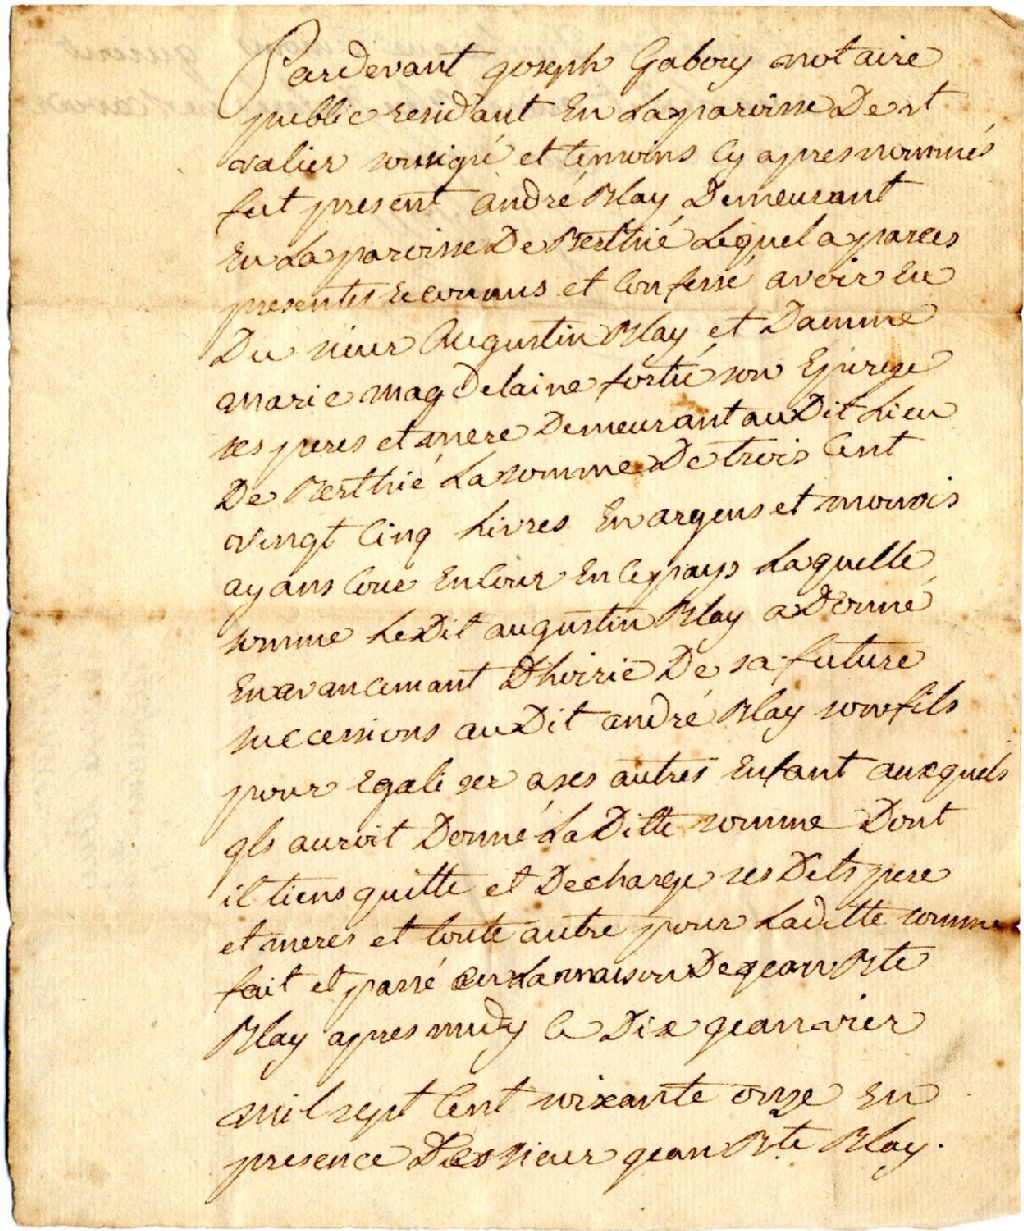 Pardevant joseph Gabory notaire
public residant En La paroisse De st
valier sousigné et temoins Cy apres nommés
fut present andré Blay Demeurant
En La paroisse De Berthié Lequel a par ces
presentes Reconnus et Confessé avoir Eu
Du sieur Augustin Blay et Damme
marie magdelaine fortié son Epouse
ses peres et mere Demeurant au Dit Lieu
De Berthié La somme De trois Cent
vingt Cinq Livres En argens et
ayans Cour En Ce pays Laquelle
somme Le Dit augustin Blay a Donné
En avancemant Dhoirie De sa future
successions au Dit andré Blay son fils
pour Egaliser a ses autres Enfant auxquels
qls auroit Donné La Ditte somme Dont
il tiens quitte et Decharge ses Dits pere
et meres et toute autre pour Laditte somme
fait et passé En La maison De jean Bte
Blay apres midy Le Dix geanvier
mil sept Cent soixante onze En
presence Des sieur jean Bte Blay.